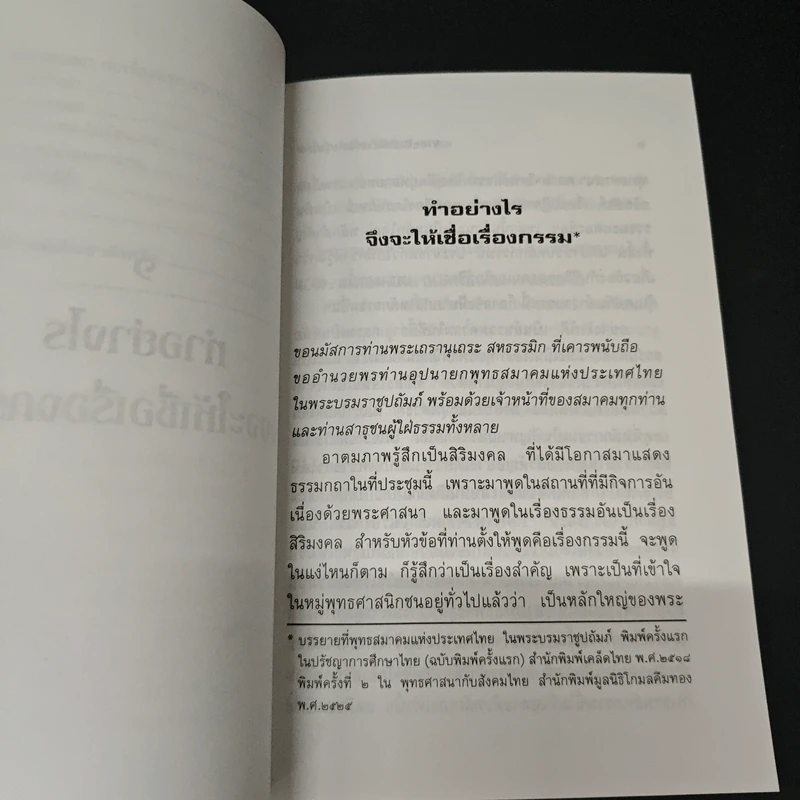 ทำอย่างไร
จึงจะให้เชื่อเรื่องกรรม*
ขอนมัสการท่านพระเถรานุเถระ สหธรรมิก ที่เคารพนับถือ
ขออำนวยพรท่านอุปนายกพุทธสมาคมแห่งประเทศไทย
ในพระบรมราชูปถัมภ์ พร้อมด้วยเจ้าหน้าที่ของสมาคมทุกท่าน
และท่านสาธุชนผู้ใฝ่ธรรมทั้งหลาย
อาตมภาพรู้สึกเป็นสิริมงคล ที่ได้มีโอกาสมาแสดง
ธรรมกถาในที่ประชุมนี้ เพราะมาพูดในสถานที่ที่มีกิจการอัน
เนื่องด้วยพระศาสนา และมาพูดในเรื่องธรรมอันเป็นเรื่อง
สิริมงคล สำหรับหัวข้อที่ท่านตั้งให้พูดคือเรื่องกรรมนี้ จะพูด
ในแง่ไหนก็ตาม ก็รู้สึกว่าเป็นเรื่องสำคัญ เพราะเป็นที่เข้าใจ
ในหมู่พุทธศาสนิกชนอยู่ทั่วไปแล้วว่า เป็นหลักใหญ่ของพระ
* บรรยายที่พุทธสมาคมแห่งประเทศไทย ในพระบรมราชูปถัมภ์ พิมพ์ครั้งแรก
ในปรัชญาการศึกษาไทย (ฉบับพิมพ์ครั้งแรก) สำนักพิมพ์เคล็ดไทย พ.ศ.๒๕๑๘
พิมพ์ครั้งที่ ๒ ใน พุทธศาสนากับสังคมไทย สำนักพิมพ์มูลนิธิโกมลคีมทอง
พ.ศ.๒๕๒๕